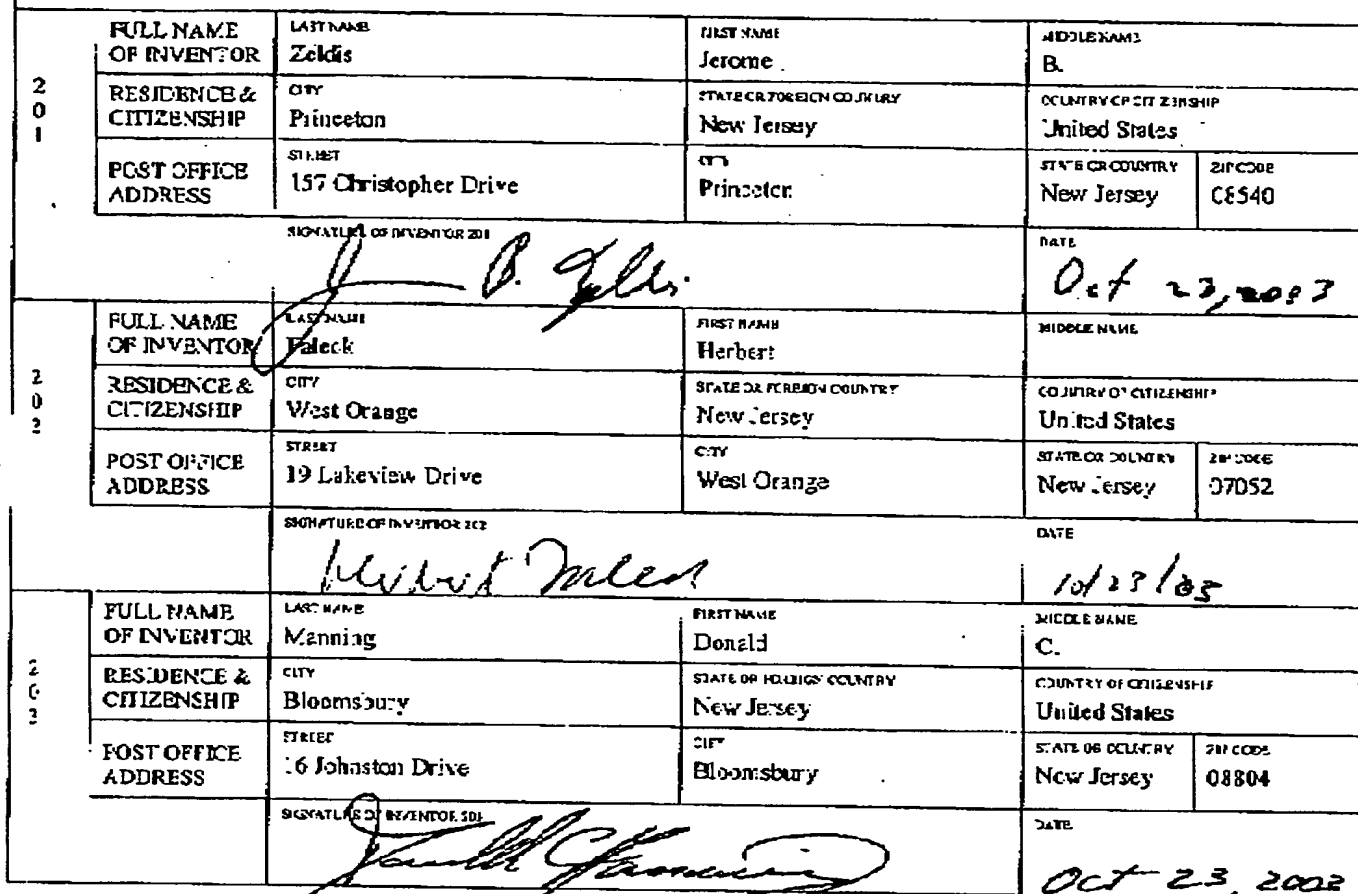 FULL NAME OF INVENTOR LAST NAME Zeldis FIRST NAME Jerome MIDDLE NAME B.
201 RESIDENCE & CITIZENSHIP CITY Princeton STATE OR FOREIGN COUNTRY New Jersey COUNTRY OF CITIZENSHIP United States
POST OFFICE ADDRESS STREET 157 Christopher Drive CITY Princeton STATE OR COUNTRY New Jersey ZIP CODE 08540
SIGNATURE OF INVENTOR 201 DATE Oct 23, 2003
FULL NAME OF INVENTOR LAST NAME Faleck FIRST NAME Herbert MIDDLE NAME
202 RESIDENCE & CITIZENSHIP CITY West Orange STATE OR FOREIGN COUNTRY New Jersey COUNTRY OF CITIZENSHIP United States
POST OFFICE ADDRESS STREET 19 Lakeview Drive CITY West Orange STATE OR COUNTRY New Jersey ZIP CODE 07052
SIGNATURE OF INVENTOR 202 Herbert Faleck DATE 10/23/03
FULL NAME OF INVENTOR LAST NAME Manning FIRST NAME Donald MIDDLE NAME C.
203 RESIDENCE & CITIZENSHIP CITY Bloomsbury STATE OR FOREIGN COUNTRY New Jersey COUNTRY OF CITIZENSHIP United States
POST OFFICE ADDRESS STREET 16 Johnston Drive CITY Bloomsbury STATE OR COUNTRY New Jersey ZIP CODE 08804
SIGNATURE OF INVENTOR DATE Oct 23, 2003